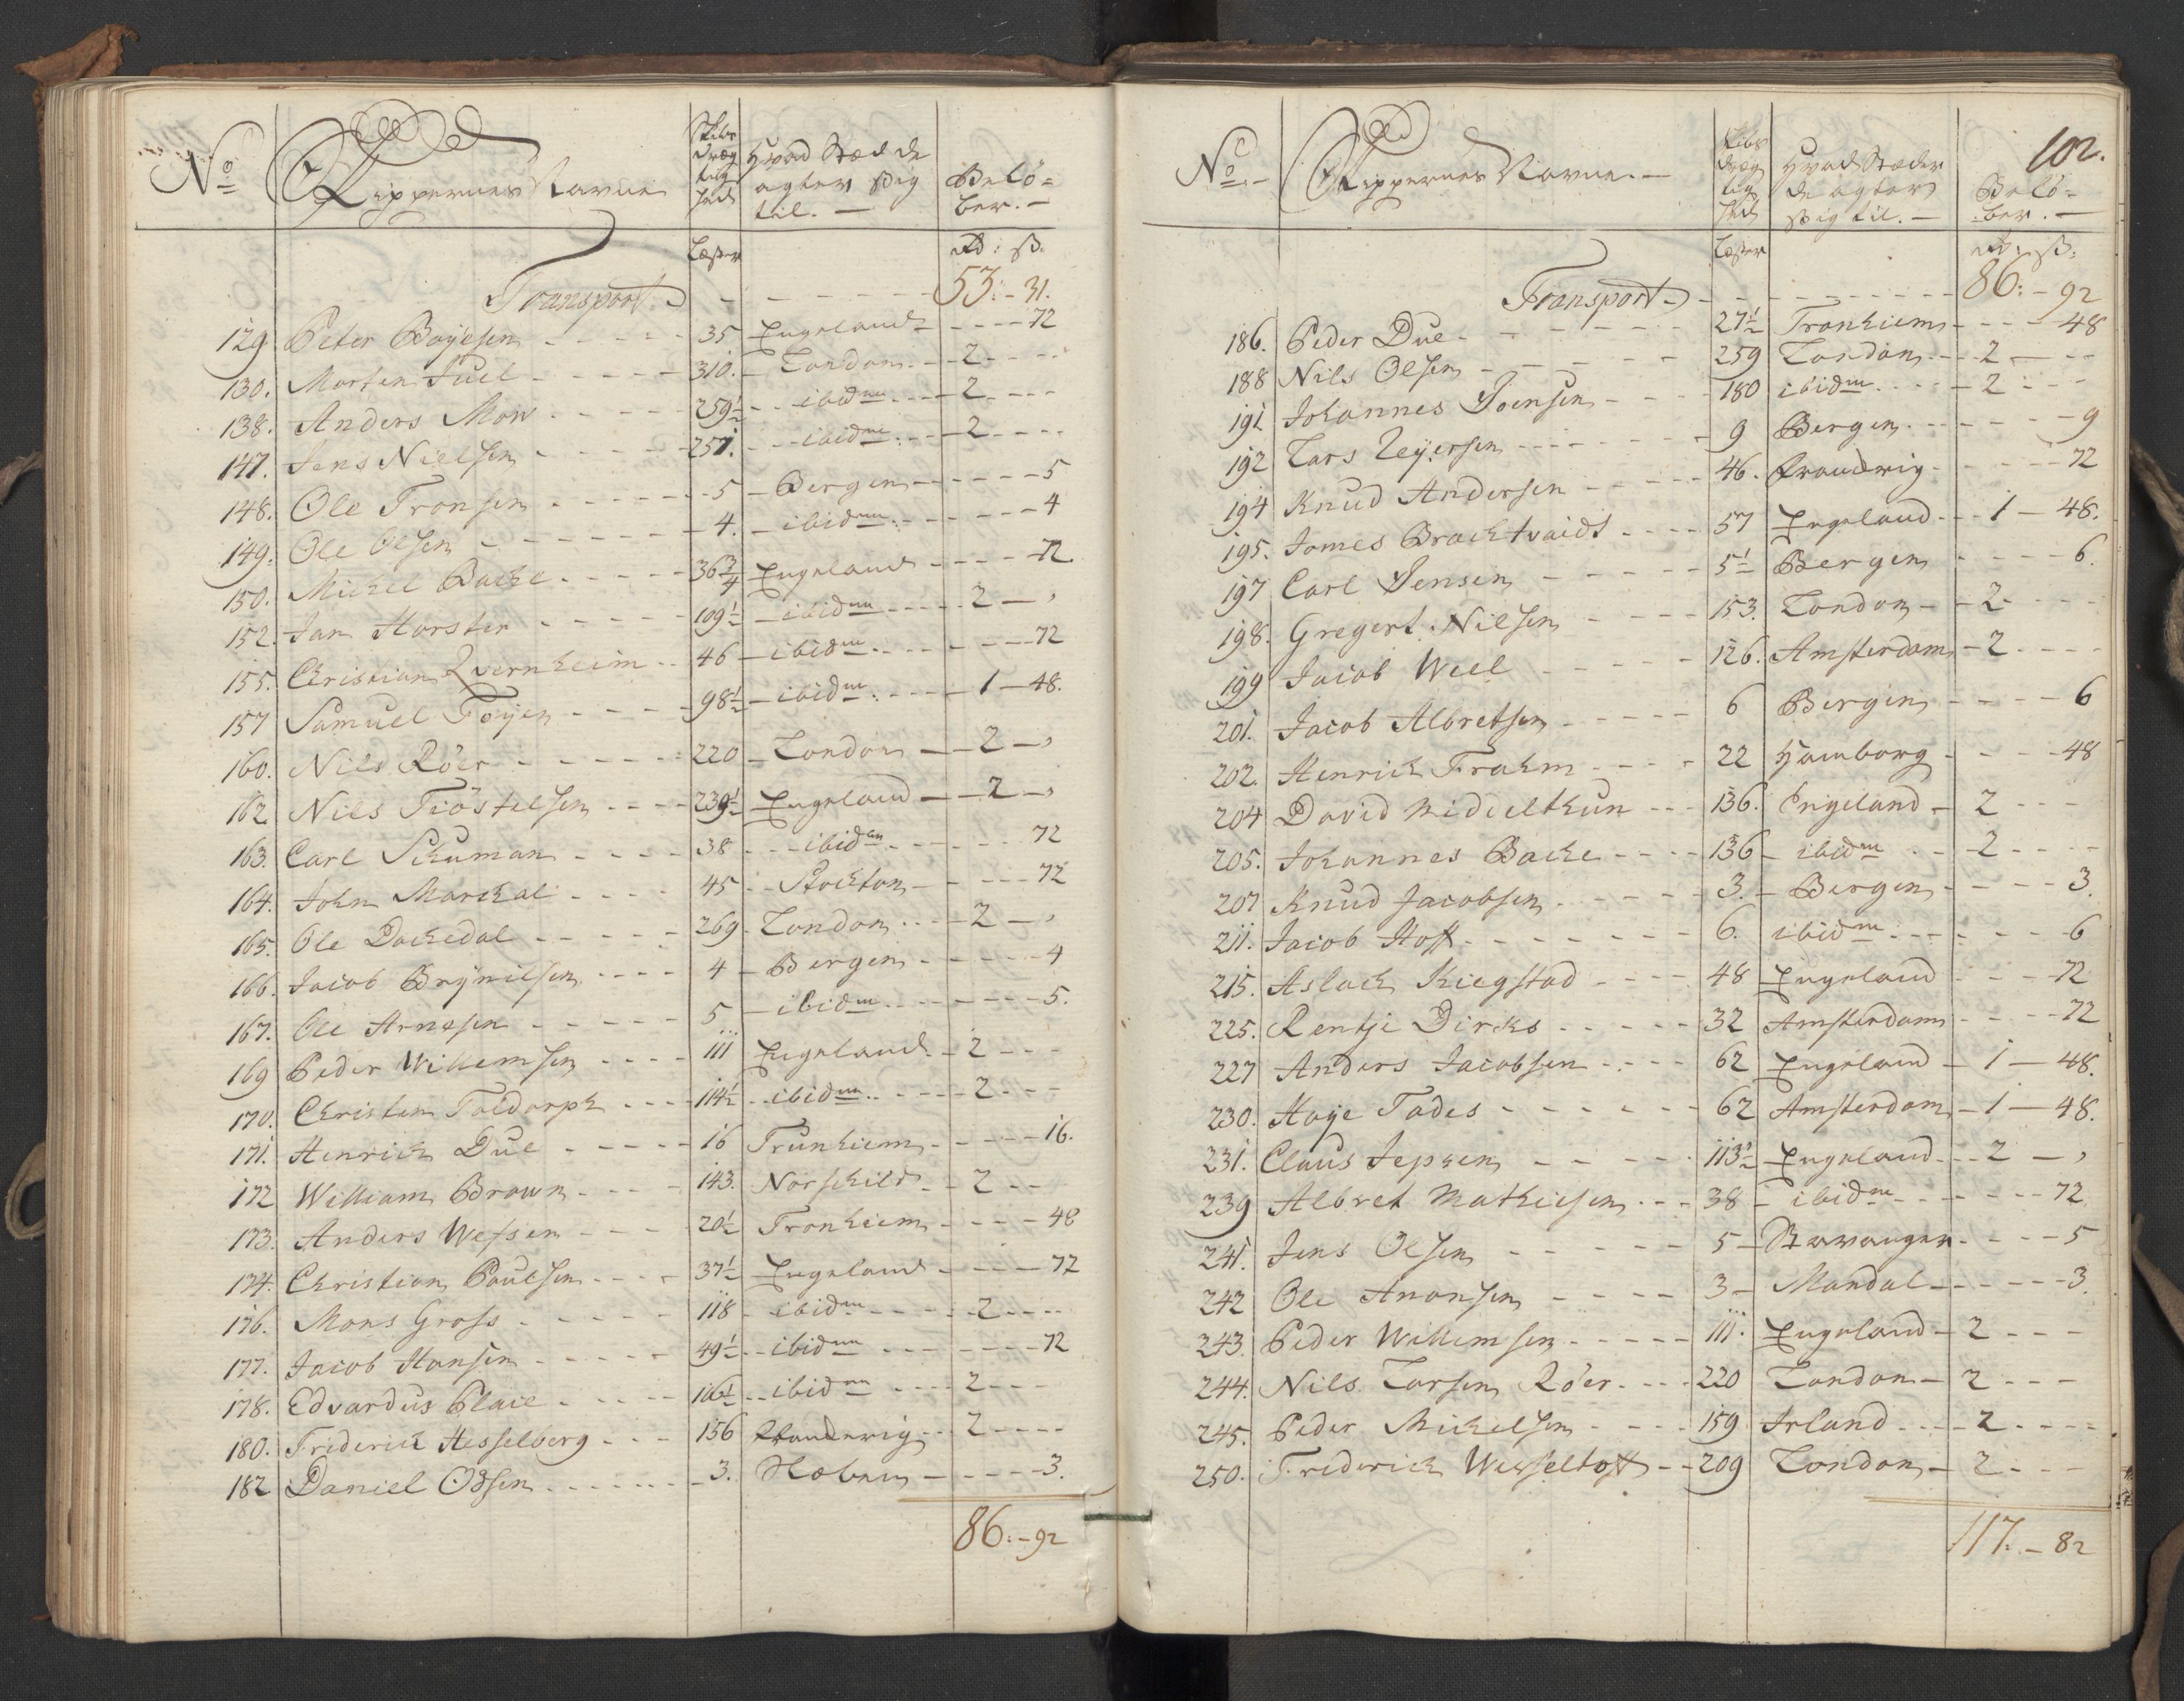 No Skippernes Navne Skibs Dræg tig hed Hvad Stæd de agter Sig til. Belö- ber.
Læster Rd: ß.
Transport 53:-31.
129. Peter Boÿesen 35 Engeland 72
130. Morten Juel 310. London 2
138. Anders Mow 259½ ibidm 2
147. Jens Nielsen 251. ibidm 2
148. Ole Tronsen 5 Bergen 5
149. Ole Olsen 4. ibidm 4
150. Michel Bache 36¾ Engeland 72
152. Jan Horster 109½ ibidm 2
155. Christian Qvernheim 46 ibidm 72
157 Samuel Föyen 98½ ibidm 1-48.
160. Nils Röer 220 London 2
162 Nils Tiöstelsen 239½ Engeland 2
163. Carl Schuman 38 ibidm 72
164. John Marchal 45 Stockton 72
165. Ole Dachedal 269 London 2
166. Jacob Brÿnilsen 4 Bergen 4
167. Ole Arnesen 5 ibidm 5.
169 Peder Willemsen 111 Engeland 2
170. Christen Toldorph 114½ ibidm 2
171. Henrich Due 16 Trunhiem 16.
172 William Brown 143. Norskild 2
173. Anders Wessen 20½ Tronhiem 48
174. Christian Poulsen 37½ Engeland 72
176. Mons Gross 118 ibidm 2
177. Jacob Hansen 49½ ibidm 72
178. Edvardus Plaie 116½ ibidm 2
180. Friderich Hesselberg 156 2
182 Daniel Odsen 3. 3.
86:-92
102.
No Skippernes Navne. Skibs Dræg tig hed Hvad Stæder de agter Sig til. Belö- ber.
Læster Rd: ß.
Transport 86:-92
186. Peder Due 27½ Tronhiem 48
188 Nils Olsen 259 London 2
191 Johannes Joensen 180 ibidm 2
192 Lars Leÿersen 9 Bergen 9
194 Knud Andersen 46. 72
195. James Brachtvaidt 57 Engeland 1-48.
197 Carl Jensen 5½ Bergen 6.
198. Gregert Nilsen 153. London 2
199 Jacob Weel 126. Amsterdam 2
201. Jacob Albretsen 6 Bergen 6
202. Henrich Frahm 22 Hamborg 48
204 David Middelthun 136. Engeland 2
205. Johannes Bache 136 ibidm 2
207 Knud Jacobsen 3. Bergen 3.
211. Jacob Hoff 6. ibidm 6
215. Aslach Kiegstad 48 Engeland 72
225. Rentje Dircks 32 Amsterdam 72
227 Anders Jacobsen 62 Engeland 1-48.
230. Haye Tades 62 Amsterdam 1-48.
231. Claus Jepsen 113½ Engeland 2
239 Albret Mathiesen 38 ibidm 72
241. Jens Olsen 5 Stavanger 5
242 Ole Anansen 3 Mandal 3.
243. Peder Willemsen 111. Engeland 2
244. Nils Larsen Röer 220 London 2
245. Peder Michelsen 159 Irland 2
250. Friderich Wesseltoft 209 London 2
117.-82